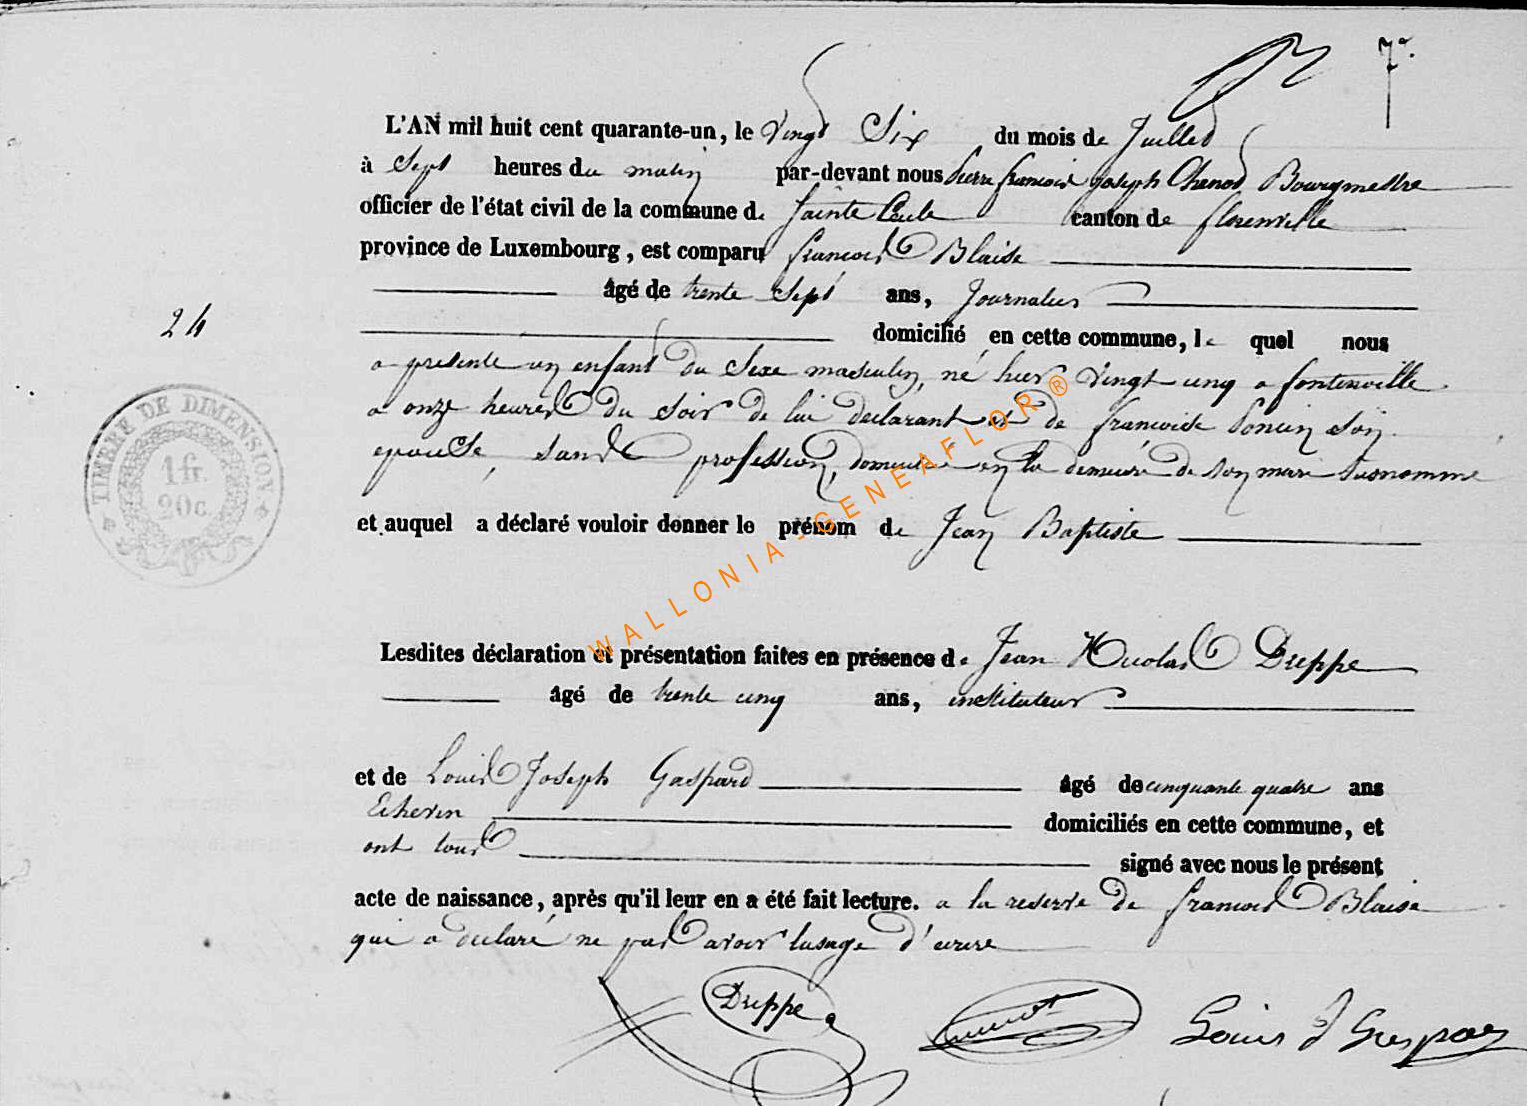 7e.
L'AN mil huit cent quarante-un, le Vingt Six du mois de Juillet
à Sept heures du matin par-devant nous Pierre francois Joseph Bourgmestre
officier de l'état civil de la commune de Sainte Cecile canton de florenville
province de Luxembourg, est comparu francois Blaise
âgé de trente Sept ans, Journalier
24
domicilié en cette commune, le quel nous
a presenté un enfant du Sexe masculin, né hier Vingt cinq a fontenoille
a onze heures du Soir de lui declarant et de francoise Poncin Son
epouse, sans profession, domiciliée en la demeure de son mari Susnommé
TIMBRE DE DIMENSION
1 fr
20c.
et auquel a déclaré vouloir donner le prénom de Jean Baptiste
WALLONIA - GENEAFLOR ®
Lesdites déclaration et présentation faites en présence de Jean Nicolas Dreppe
âgé de trente cinq ans, instituteur
et de Louis Joseph Gaspard âgé de cinquante quatre ans
Echevin domiciliés en cette commune, et
ont tous signé avec nous le présent
acte de naissance, après qu'il leur en a été fait lecture. a la reserve de francois Blaise
qui a declaré ne pas avoir lusage d'ecrire
Dreppe Louis J Gaspar